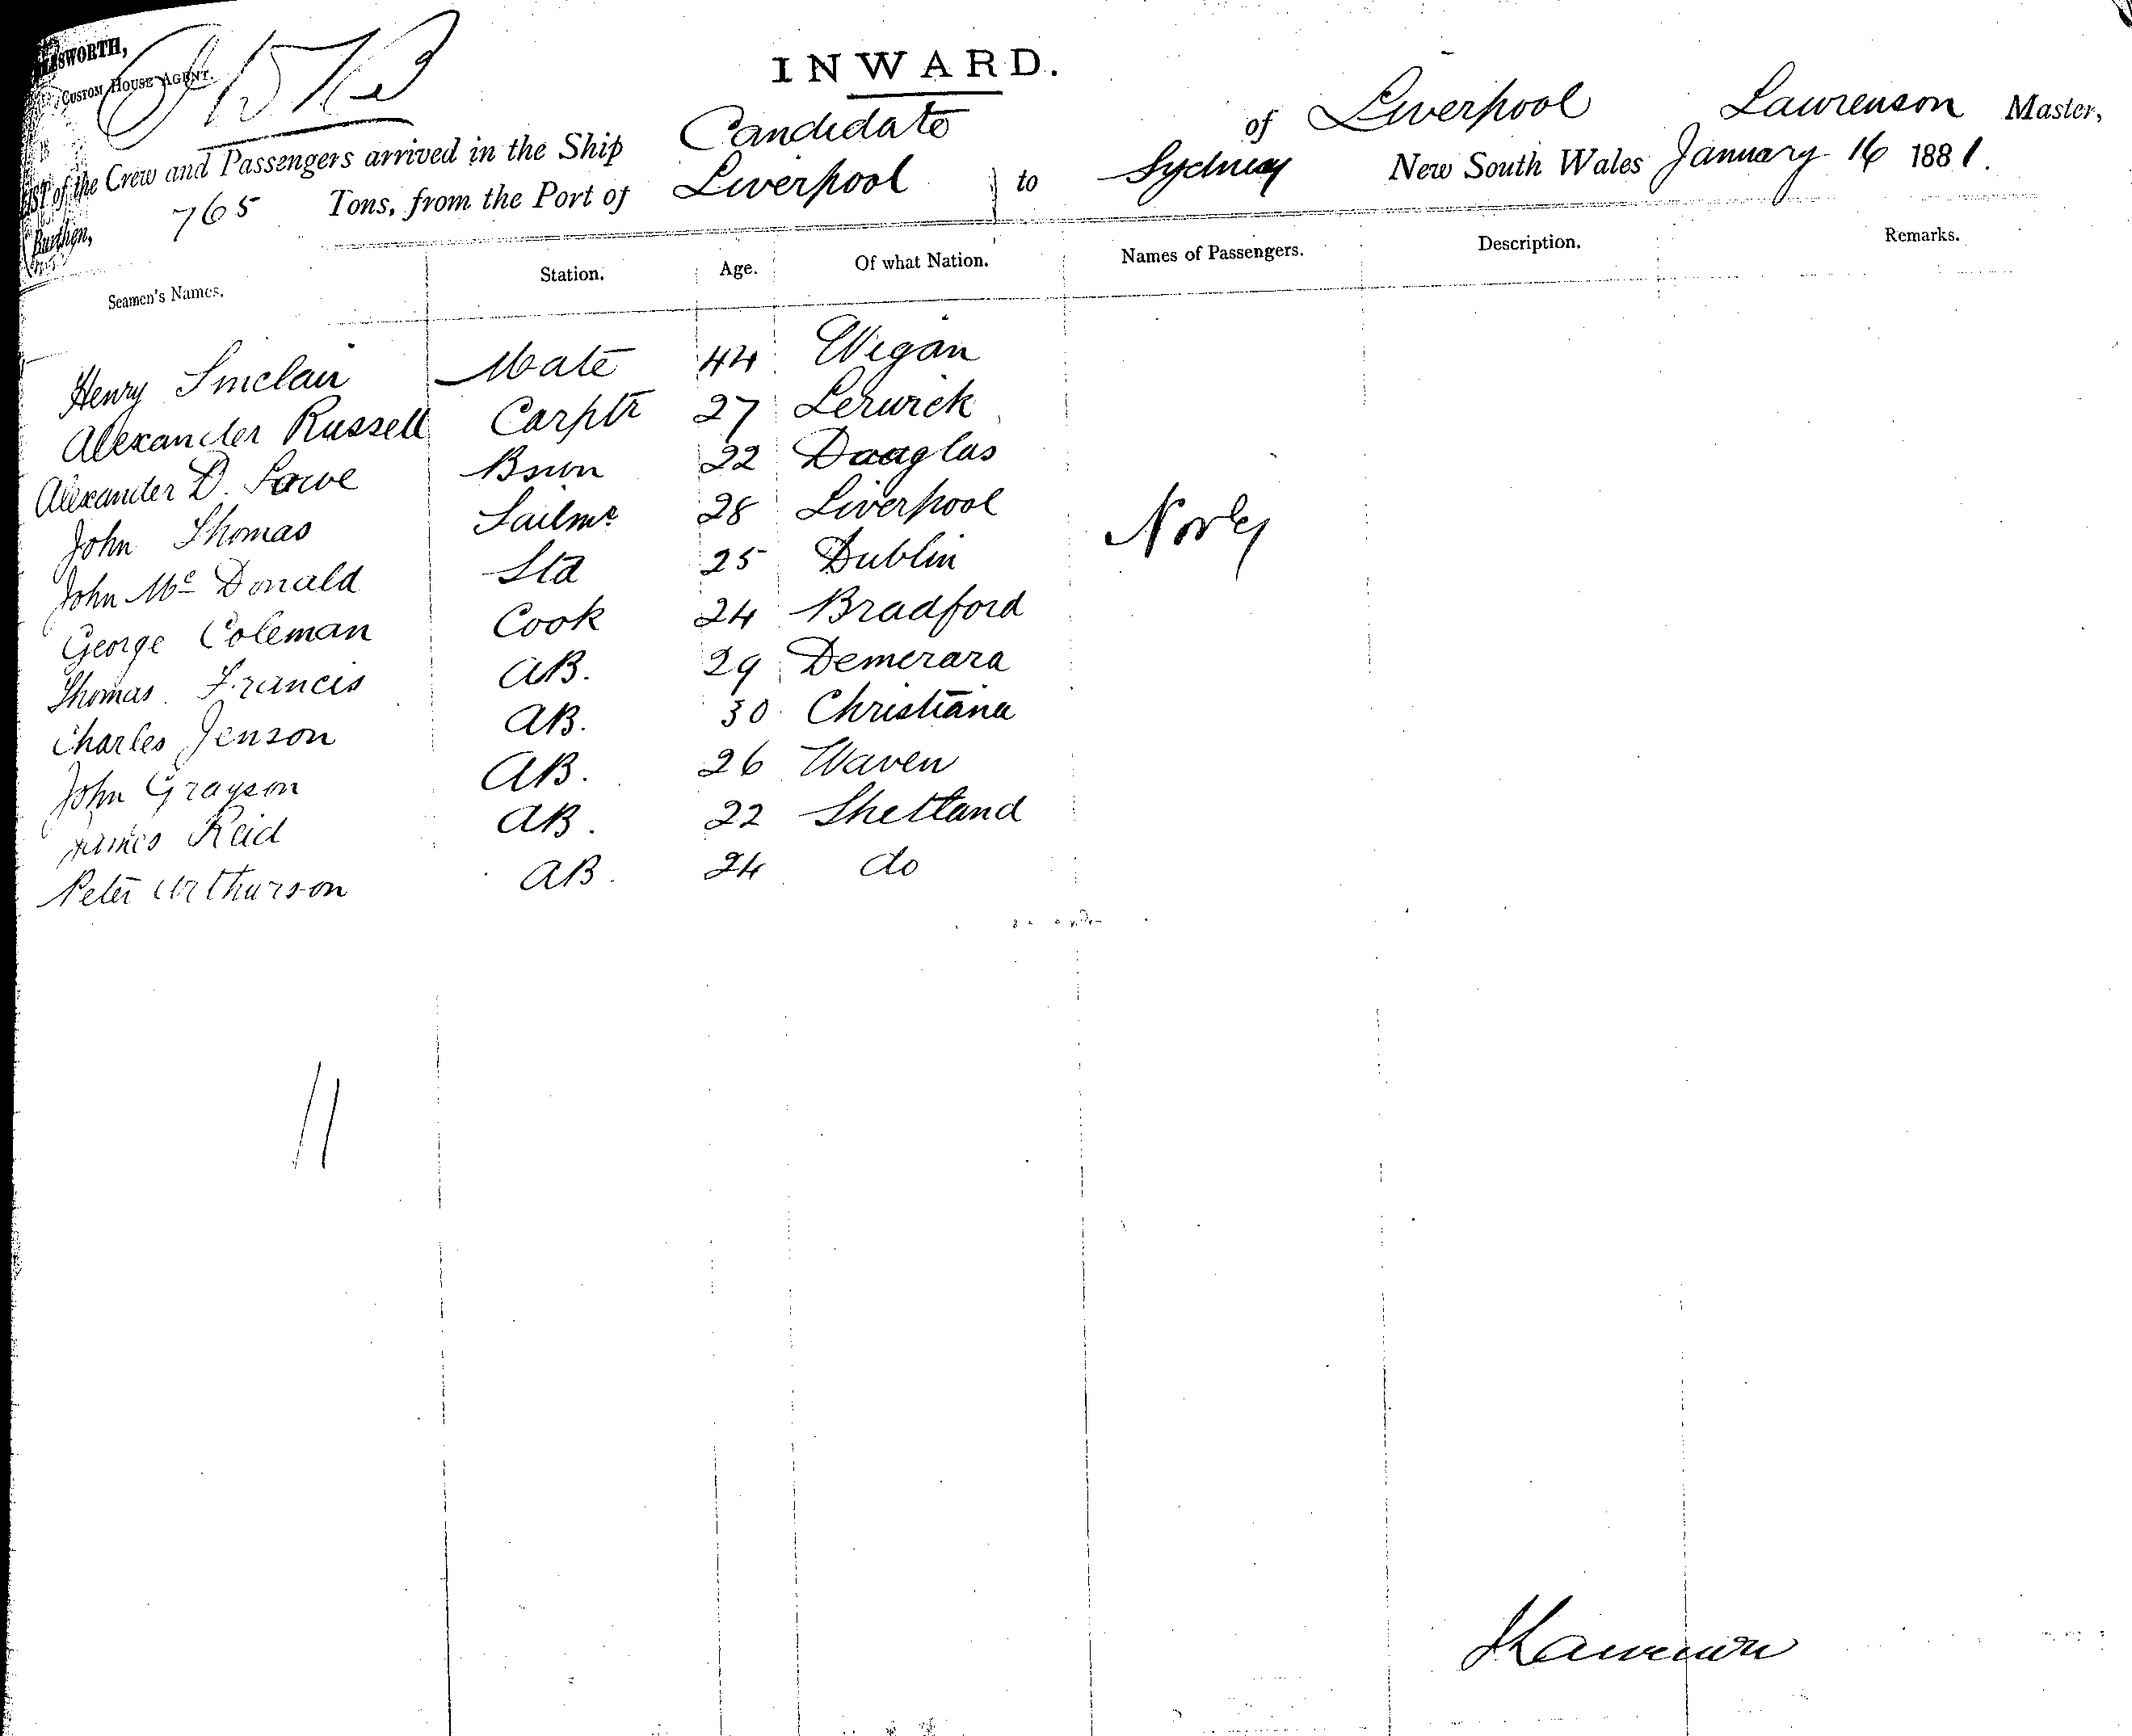 CUSTOM HOUSE AGENT.
INWARD.
LIST of the Crew and Passengers arrived in the Ship Candidate of Liverpool Lawrenson Master,
Burthen, 765 Tons, from the Port of Liverpool to Sydney New South Wales January 16 1881.
Seamen's Names. Station. Age. Of what Nation. Names of Passengers. Description. Remarks.
Henry Sinclair Mate 44 Wigan
Alexander Russell Carptr 27 Lerwick
Alexander D. Lowe Bsun 22 Douglas
John Thomas Sailmr 28 Liverpool
John Mc Donald Std 25 Dublin
George Coleman Cook 24 Bradford
Thomas Francis AB. 29 Demerara
Charles Jenson AB. 30 Christiana
John Grayson AB. 26 Waven
James Reid AB. 22 Shetland
Peter Arthurson AB. 24 do
11